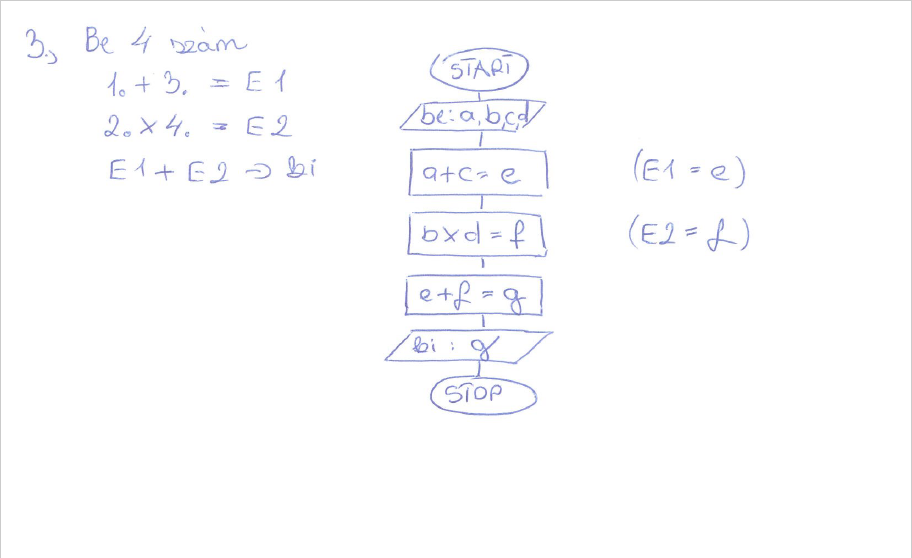 3., Be 4 szám
1. + 3. = E1
2. x 4. = E2
E1 + E2 → ki
START
be: a, b, c, d
a+c = e
(E1 = e)
b x d = f
(E2 = f)
e+f = g
ki : g
STOP